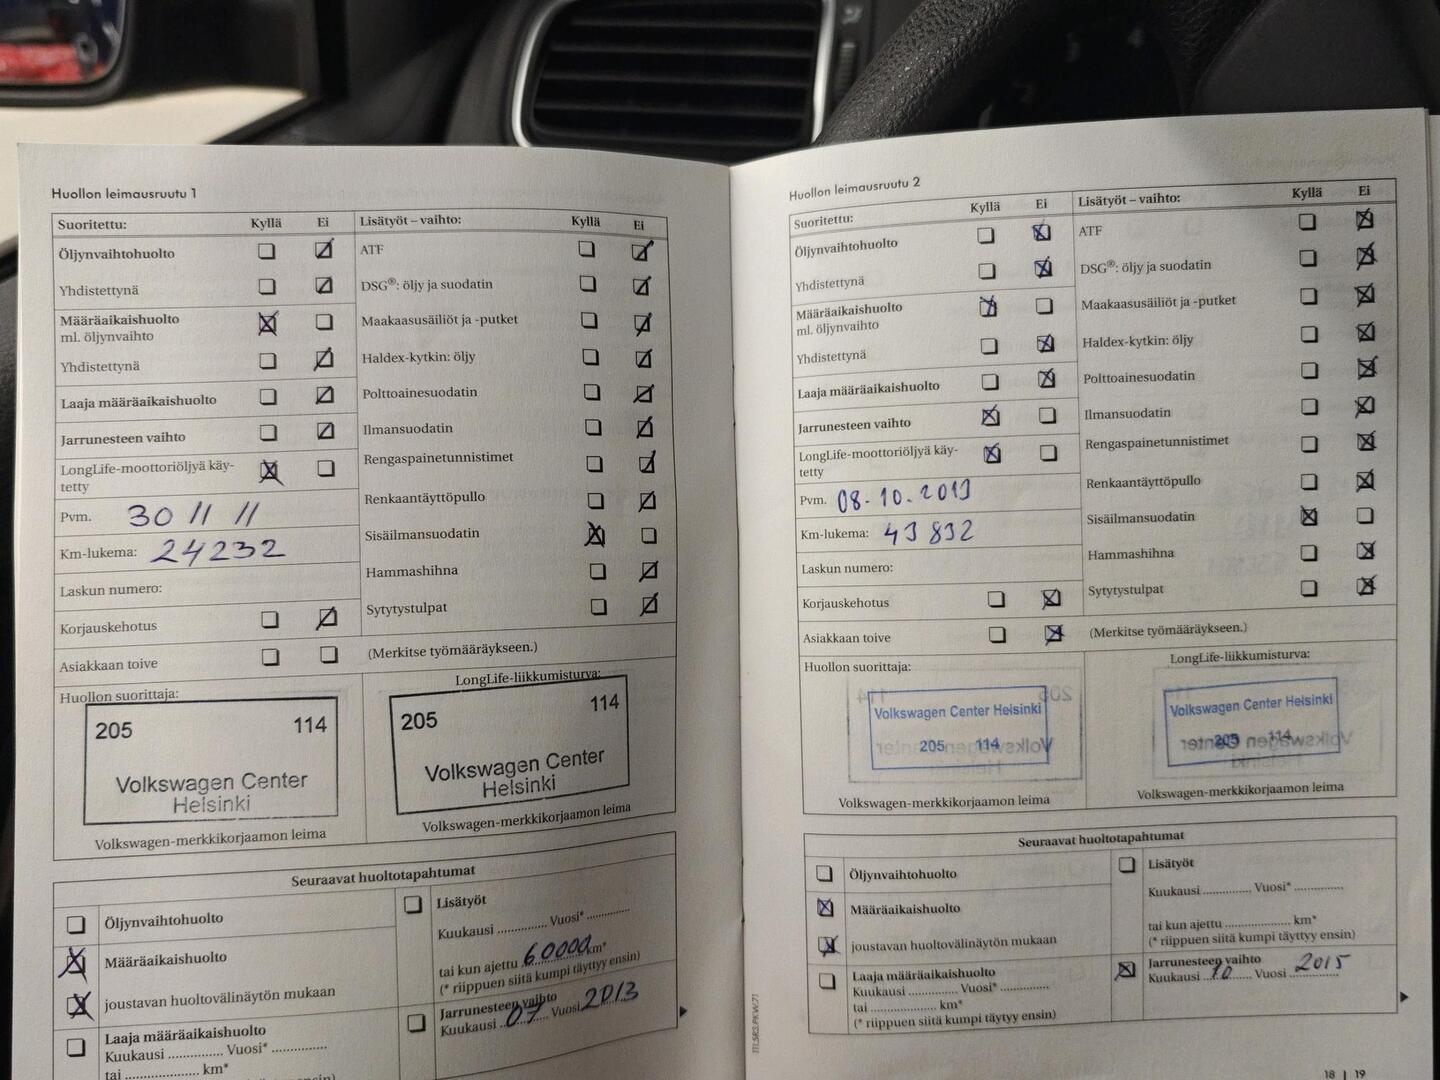 Huollon leimausruutu 1
Suoritettu: Kyllä Ei
Öljynvaihtohuolto
Yhdistettynä
Määräaikaishuolto
ml. öljynvaihto
Yhdistettynä
Laaja määräaikaishuolto
Jarrunesteen vaihto
LongLife-moottoriöljyä käy-
tetty
Pvm. 30 11 11
Km-lukema: 24232
Laskun numero:
Korjauskehotus
Asiakkaan toive
Lisätyöt – vaihto: Kyllä Ei
ATF
DSG®: öljy ja suodatin
Maakaasusäiliöt ja -putket
Haldex-kytkin: öljy
Polttoainesuodatin
Ilmansuodatin
Rengaspainetunnistimet
Renkaantäyttöpullo
Sisäilmansuodatin
Hammashihna
Sytytystulpat
(Merkitse työmääräykseen.)
Huollon suorittaja:
205 114
Volkswagen Center
Helsinki
Volkswagen-merkkikorjaamon leima
LongLife-liikkumisturva:
205 114
Volkswagen Center
Helsinki
Volkswagen-merkkikorjaamon leima
Seuraavat huoltotapahtumat
Öljynvaihtohuolto
Määräaikaishuolto
joustavan huoltovälinäytön mukaan
Laaja määräaikaishuolto
Kuukausi .............. Vuosi* ..............
tai .................... km*
Lisätyöt
Kuukausi .............. Vuosi* ..............
tai kun ajettu 60000 km*
(* riippuen siitä kumpi täyttyy ensin)
Jarrunesteen vaihto
Kuukausi 07 Vuosi 2013
Huollon leimausruutu 2
Suoritettu: Kyllä Ei
Öljynvaihtohuolto
Yhdistettynä
Määräaikaishuolto
ml. öljynvaihto
Yhdistettynä
Laaja määräaikaishuolto
Jarrunesteen vaihto
LongLife-moottoriöljyä käy-
tetty
Pvm. 08.10.2013
Km-lukema: 43832
Laskun numero:
Korjauskehotus
Asiakkaan toive
Lisätyöt – vaihto: Kyllä Ei
ATF
DSG®: öljy ja suodatin
Maakaasusäiliöt ja -putket
Haldex-kytkin: öljy
Polttoainesuodatin
Ilmansuodatin
Rengaspainetunnistimet
Renkaantäyttöpullo
Sisäilmansuodatin
Hammashihna
Sytytystulpat
(Merkitse työmääräykseen.)
Huollon suorittaja:
Volkswagen Center Helsinki
205 114
Volkswagen-merkkikorjaamon leima
LongLife-liikkumisturva:
Volkswagen Center Helsinki
205 114
Volkswagen-merkkikorjaamon leima
Seuraavat huoltotapahtumat
Öljynvaihtohuolto
Määräaikaishuolto
joustavan huoltovälinäytön mukaan
Laaja määräaikaishuolto
Kuukausi .............. Vuosi* ..............
tai .................... km*
(* riippuen siitä kumpi täytyy ensin)
Lisätyöt
Kuukausi .............. Vuosi* ..............
tai kun ajettu .................... km*
(* riippuen siitä kumpi täyttyy ensin)
Jarrunesteen vaihto
Kuukausi 10 Vuosi 2015
18 | 19